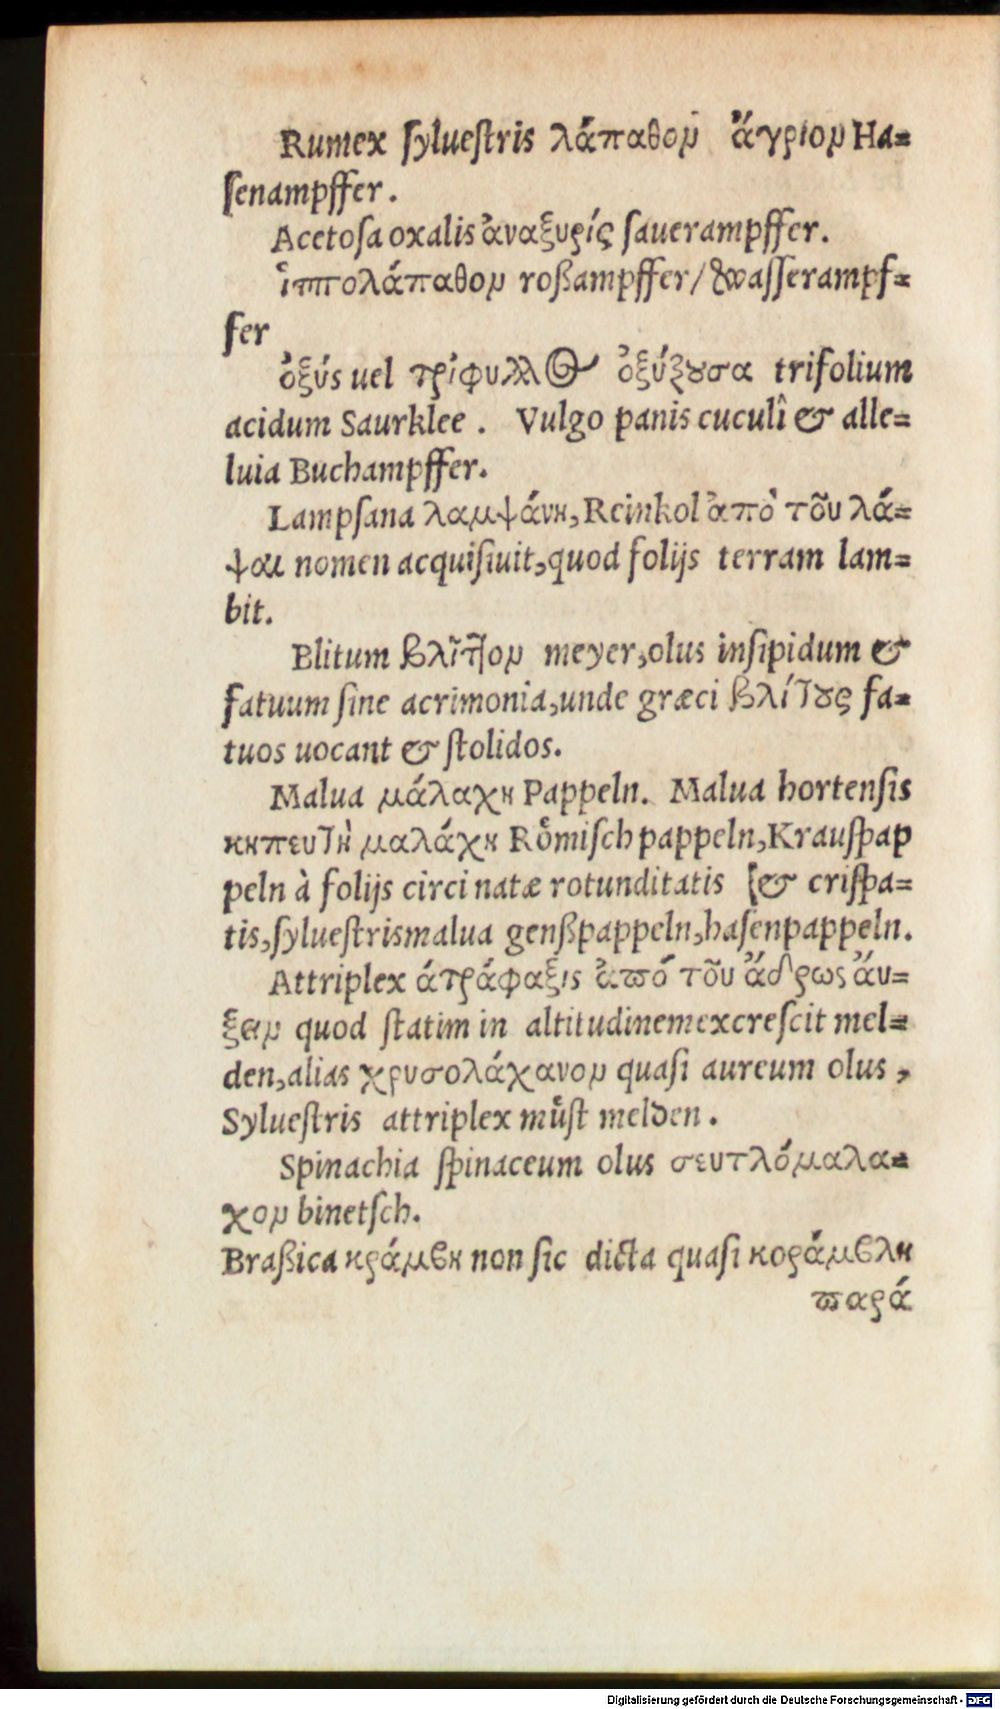 Rumex ſylueſtris λάπαθον ἄγριον Ha=
ſenampffer.
Acetoſa oxalis ἀναξυρίς ſauerampffer.
ἱππολάπαθον roßampffer/waſſerampf=
fer
ὀξύs uel τρίφυλλΘ ὀξύζουσα trifolium
acidum Saurklee. Vulgo panis cuculî & alle=
luia Buchampffer.
Lampſana λαμψάνη, Reinkol ἀπὸ τοῦ λά=
ψαι nomen acquiſiuit, quod folijs terram lam=
bit.
Blitum βλῖτον meyer, olus inſipidum &
fatuum ſine acrimonia, unde græci βλίτους fa=
tuos uocant & ſtolidos.
Malua μάλαχη Pappeln. Malua hortenſis
κηπευτὴ μαλάχη Roͤmiſch pappeln, Krauſpap
peln à folijs circinatæ rotunditatis [& criſpa=
tis, ſylueſtrismalua genßpappeln, haſenpappeln.
Attriplex ἀτράφαξις ἀπό τοῦ ἅδρως ἄυ=
ξειν quod ſtatim in altitudinemexcreſcit mel=
den, alias χρυσολάχανον quaſi aureum olus,
Sylueſtris attriplex muͤſt melden.
Spinachia ſpinaceum olus σευτλόμαλα=
χον binetſch.
Braßica κράμβη non ſic dicta quaſi κοράμβλη
παρά
Digitalisierung gefördert durch die Deutsche Forschungsgemeinschaft - DFG